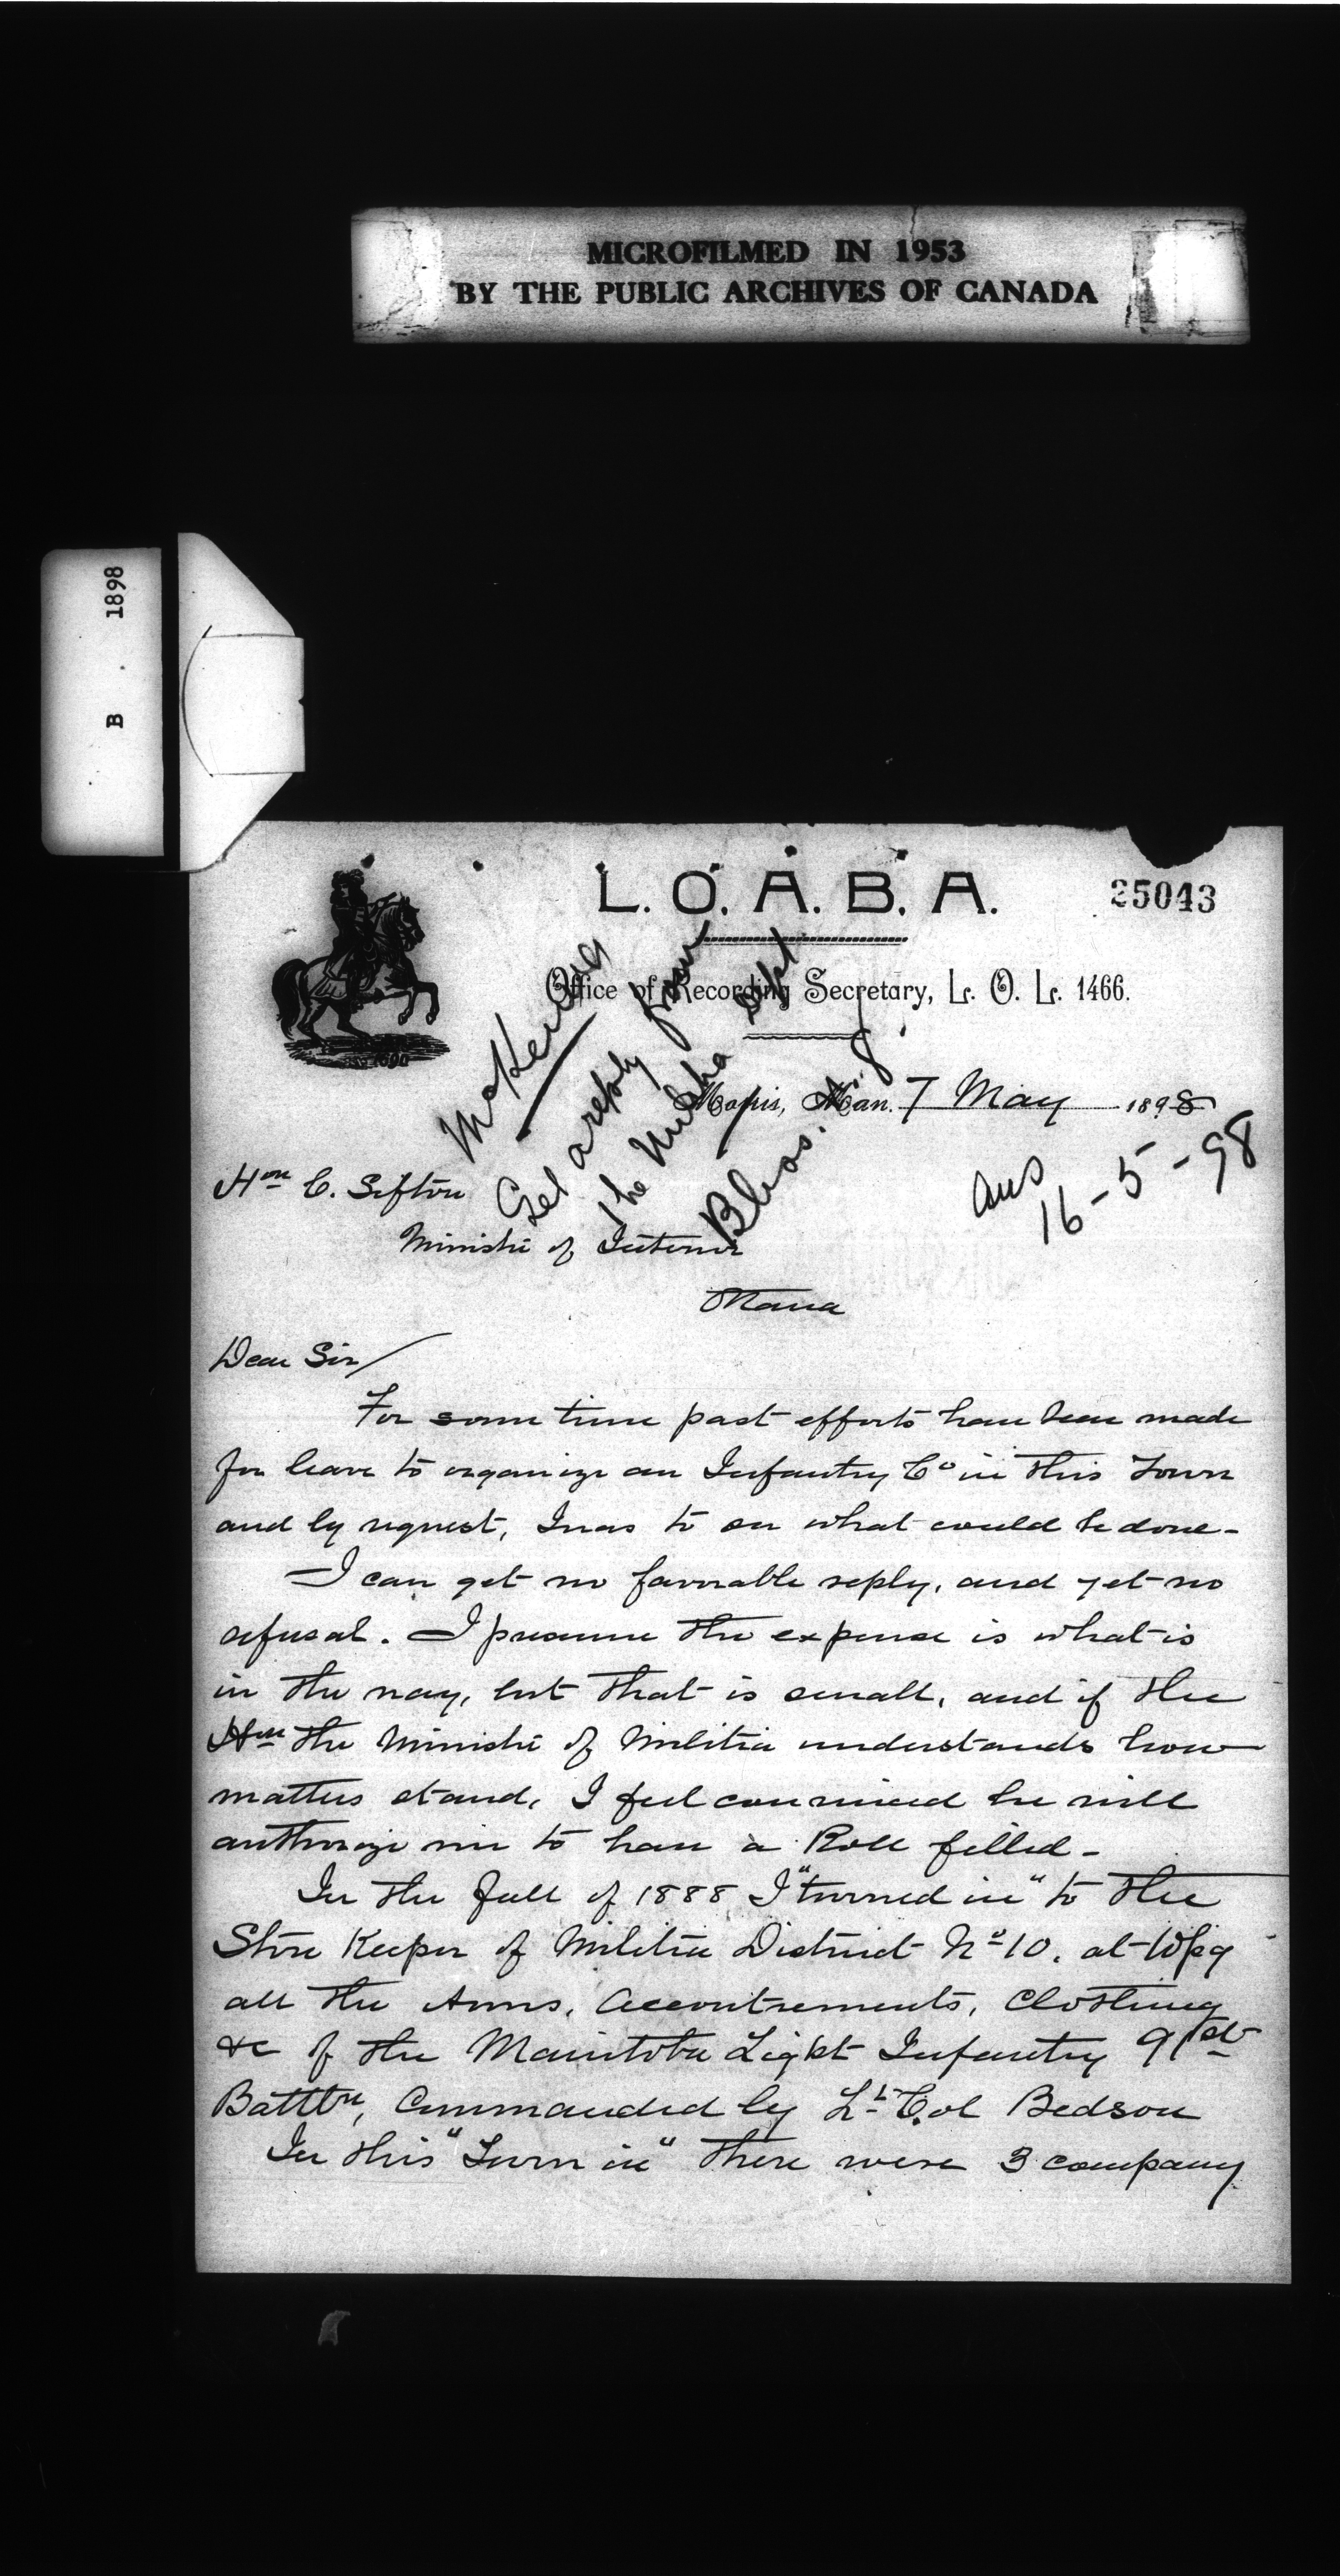 MICROFILMED IN 1953
BY THE PUBLIC ARCHIVES OF CANADA
B . 1898
L. O. A. B. A.
25043
Office of Recording Secretary, L. O. L. 1466.
McKenna
Get a reply from
the Militia Dept
Morris, Man. 7 May 1898
ans
16-5-98
Hon C. Sifton
Ministr of Interior
Ottawa
Dear Sir/
For some time past efforts have been made
for leave to organize an Infantry Co in this Town
and by request, I was to see what could be done -
I can get no favorable reply, and yet no
refusal. I presume the expense is what is
in the way, but that is small, and if the
Hon the Ministr of Militia understands how
matters stand, I feel convinced he will
authorize me to have a Roll filled -
In the fall of 1888 I "turned in" to the
Store Keeper of Militia District No 10. at Wpg
all the Arms, Accoutrements, Clothing
&c of the Manitoba Light Infantry 91st
Battln, Commanded by Lt Col Bedson
In this "Turn in" there were 3 company